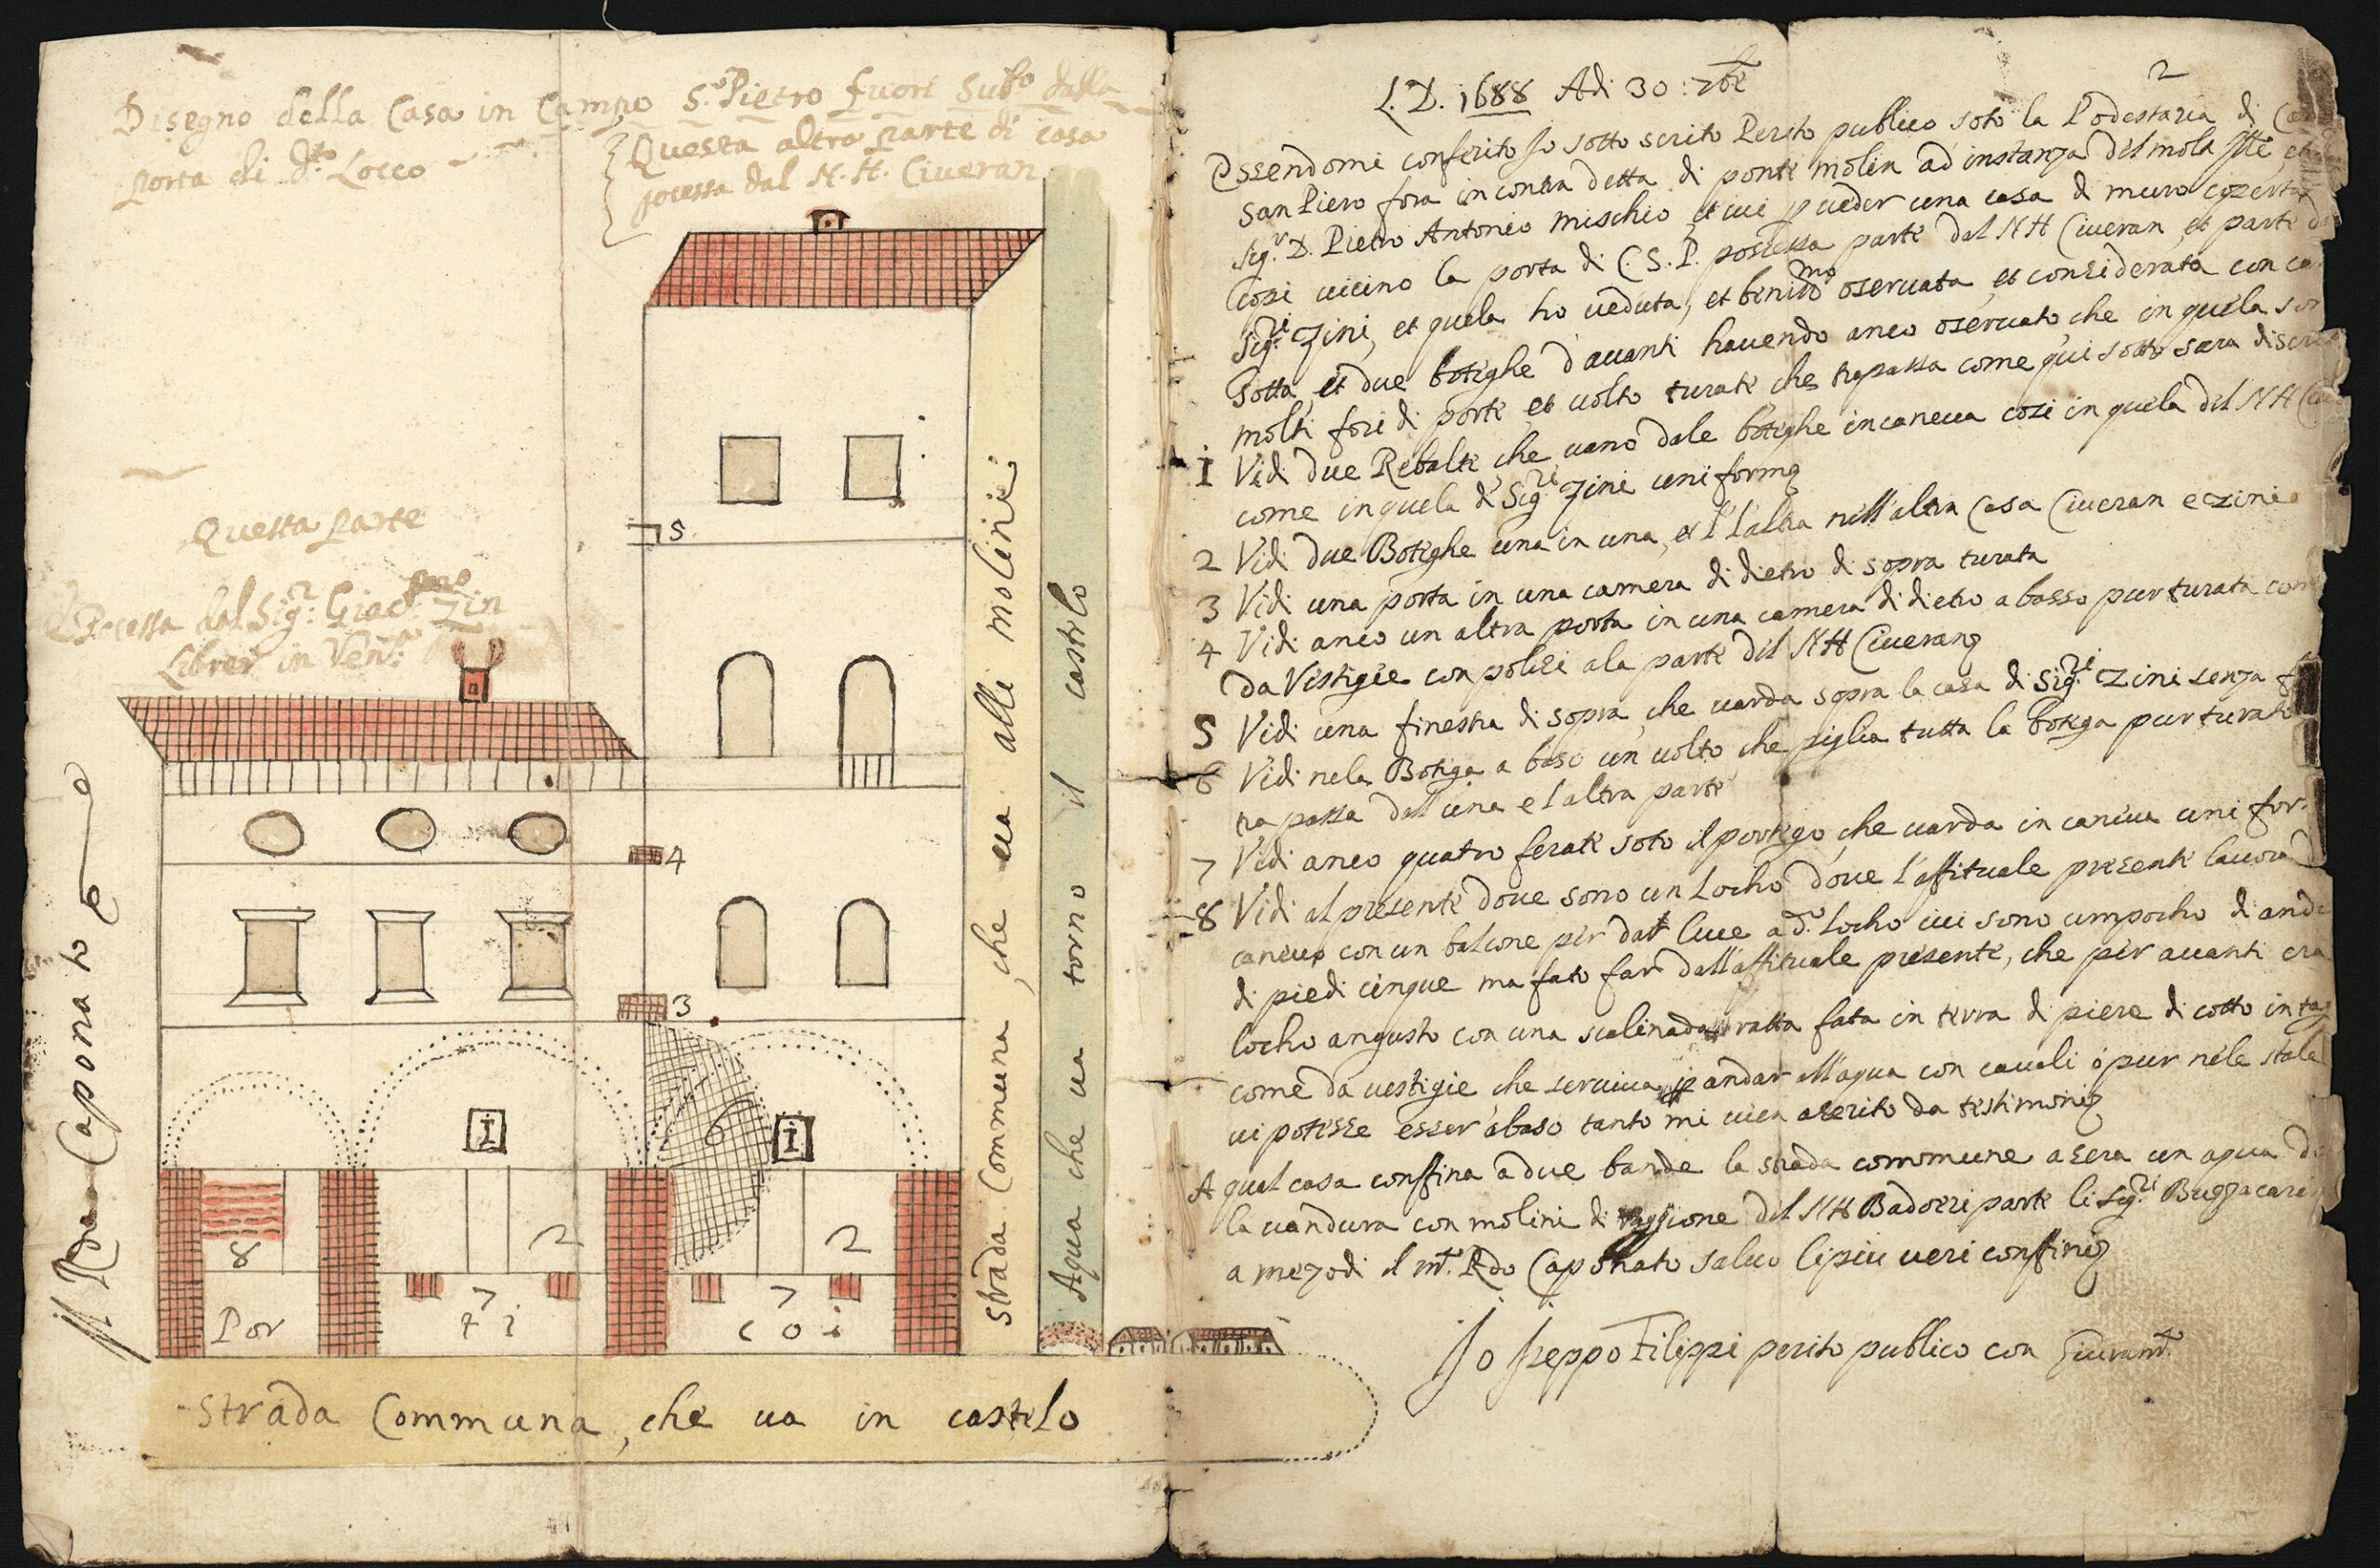 Disegno della Casa in Campo S.o Pietro fuori Sub.o dalla
porta di d.to Loco
Questa altra parte di casa
possessa dal N. H. Ciueran
Questa parte
Possessa dal Sig.r Giac.o Zin
Librer in Ven.a
il Rdo Caponato
5
4
3
I
6
I
8
2
2
7
7
Por
ti
coi
strada Communa, che ua alli molini
Agua che ua torno il castelo
strada Communa, che ua in castelo
2
L. D. 1688 Adi 30: 7bre
Essendomi conferito Io sotto scrito Perito publico soto la Podestaria di
San Piero fora in contra detta di ponte molin ad instanza del molto Ille
Sig.r D. Pietro Antonio Mischio, et iui p ueder una casa di muro coperta
copi uicino la porta di C. S. P. possessa parte dal N H Ciueran, et parte
Sig.ri Zini, et quela ho ueduta, et benis.mo oseruata, et considerata con
sotta, et due boteghe d'auanti hauendo anco oseruato, che in quela
molti fori di porte, et uolto turate che trapassa come qui sotto sara
1 Vidi due Rebalte, che uano dale boteghe in caneua cosi in quela del N H
come in quela d Sig.ri Zini uniforme
2 Vidi due Boteghe una in una, et l'altra nell'altra Casa Ciueran e Zini
3 Vidi una porta in una camera di dietro di sopra turata
4 Vidi anco un altra porta in una camera di dietro a basso pur turata
da Vestigie con polesi ala parte del N H Ciueran
5 Vidi una finestra di sopra, che uarda sopra la casa di Sig.ri Zini senza
6 Vidi nela Botega a baso un uolto, che piglia tutta la botega pur turato
tra passa dall'una e l'altra parte
7 Vidi anco quatro ferate soto il portego, che uarda in caneua uni for
8 Vidi al presente doue sono un Locho doue l'affituale presente lauora
caneuo con un balcone per dar luce a d.o Locho iui sono umpocho di
di piedi cinque ma fato far dall'affituale presente, che per auanti era
locho angusto con una scalinada ratta fata in terra di piere di cotto
come da uestigie che seruiua p andar all'agua con caualli ò pur nele stale
ui potesse esser abaso tanto mi uien aserito da testimoni
A qual casa confina a due bande la strada commune a sera un agua
la uandura con molini di raggione del N H Badoer parte li Sig.ri Buzzacarini
a mezodi il m.to Rdo Caponato saluo li piu ueri confini
Io Iseppo Filippi perito publico con Giuram.to